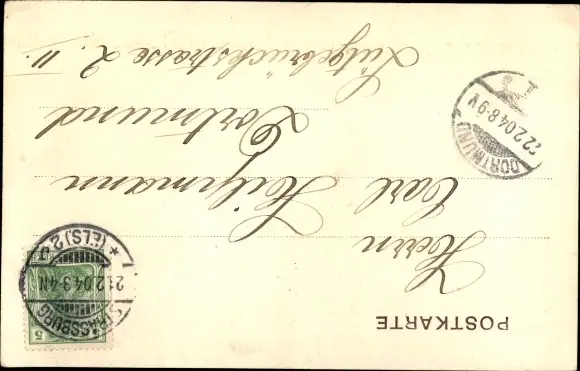 POSTKARTE
Herrn
Carl Heilgmann
Dortmund
Lütgebrückstrasse 2. II.
STRASSBURG
21.2.04.3-4N
* (ELS.) 2
5
DORTMUND
22.2.04.8-9V